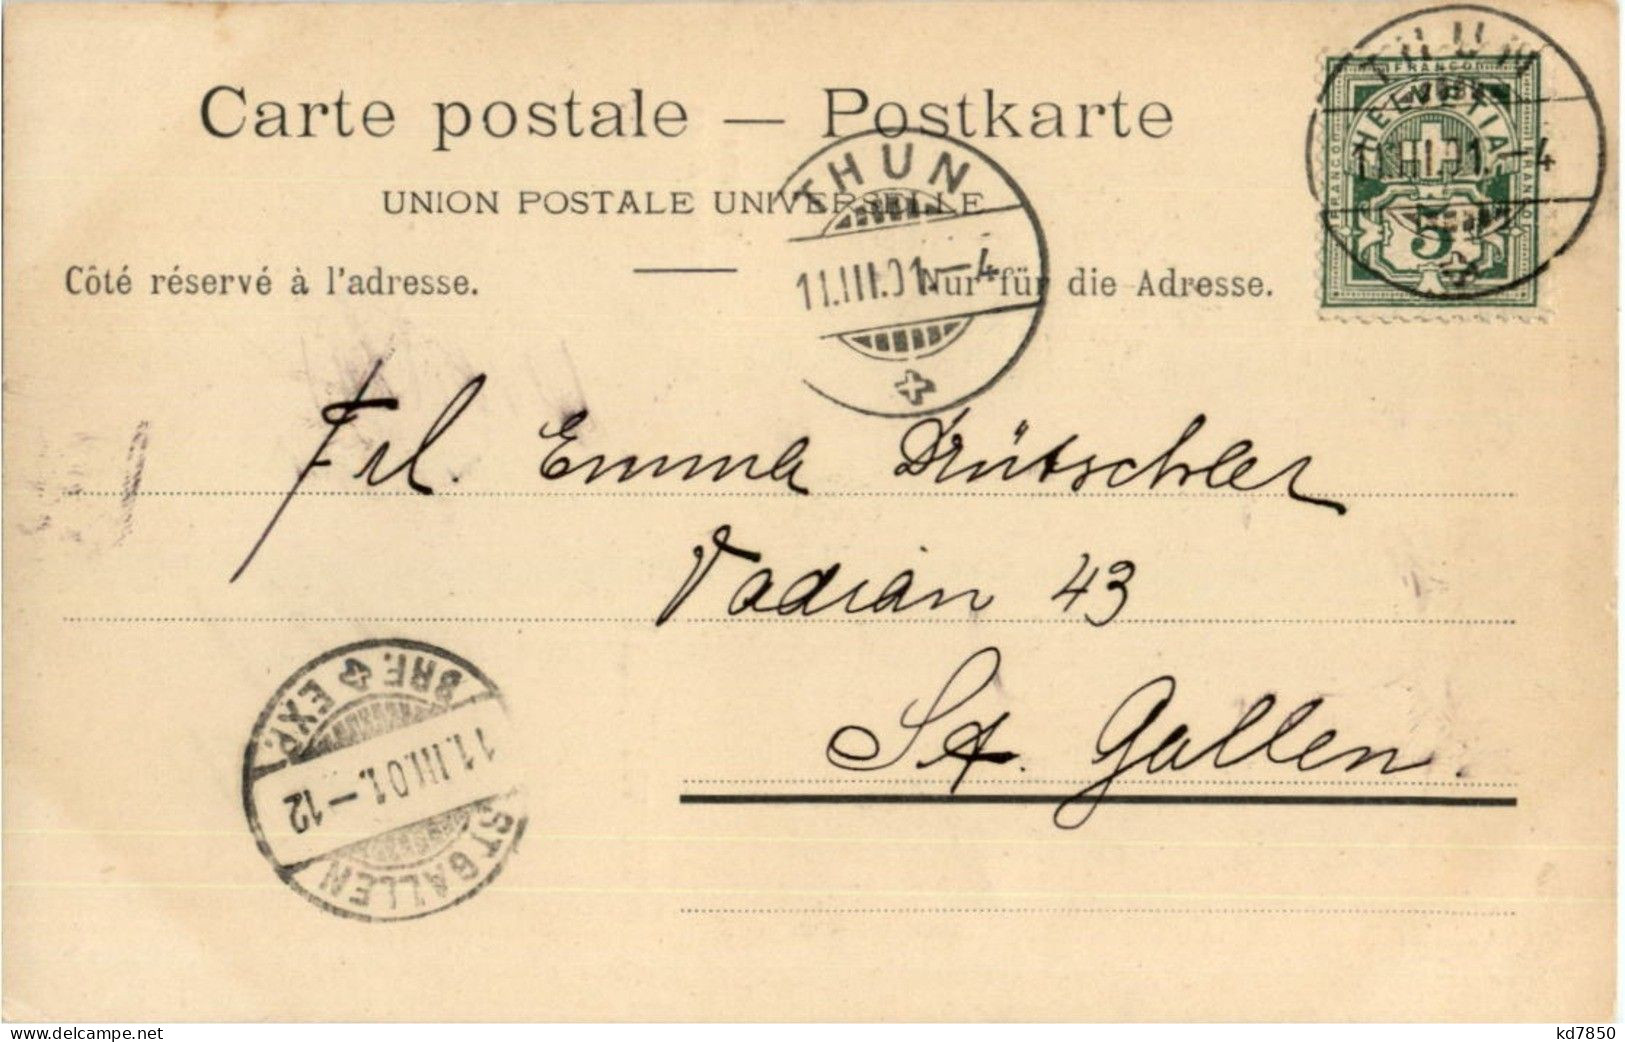 Carte postale — Postkarte
UNION POSTALE UNIVERSELLE
Côté réservé à l'adresse. Nur für die Adresse.
THUN
11.III.01.-4
FRANCO
HELVETIA
FRANCO
FRANCO
5
THUN
11.III.01.-4
Frl. Emma
Vadian 43
St. Gallen.
BRF. EXP.
11.III.01.-12
ST GALLEN
kd7850